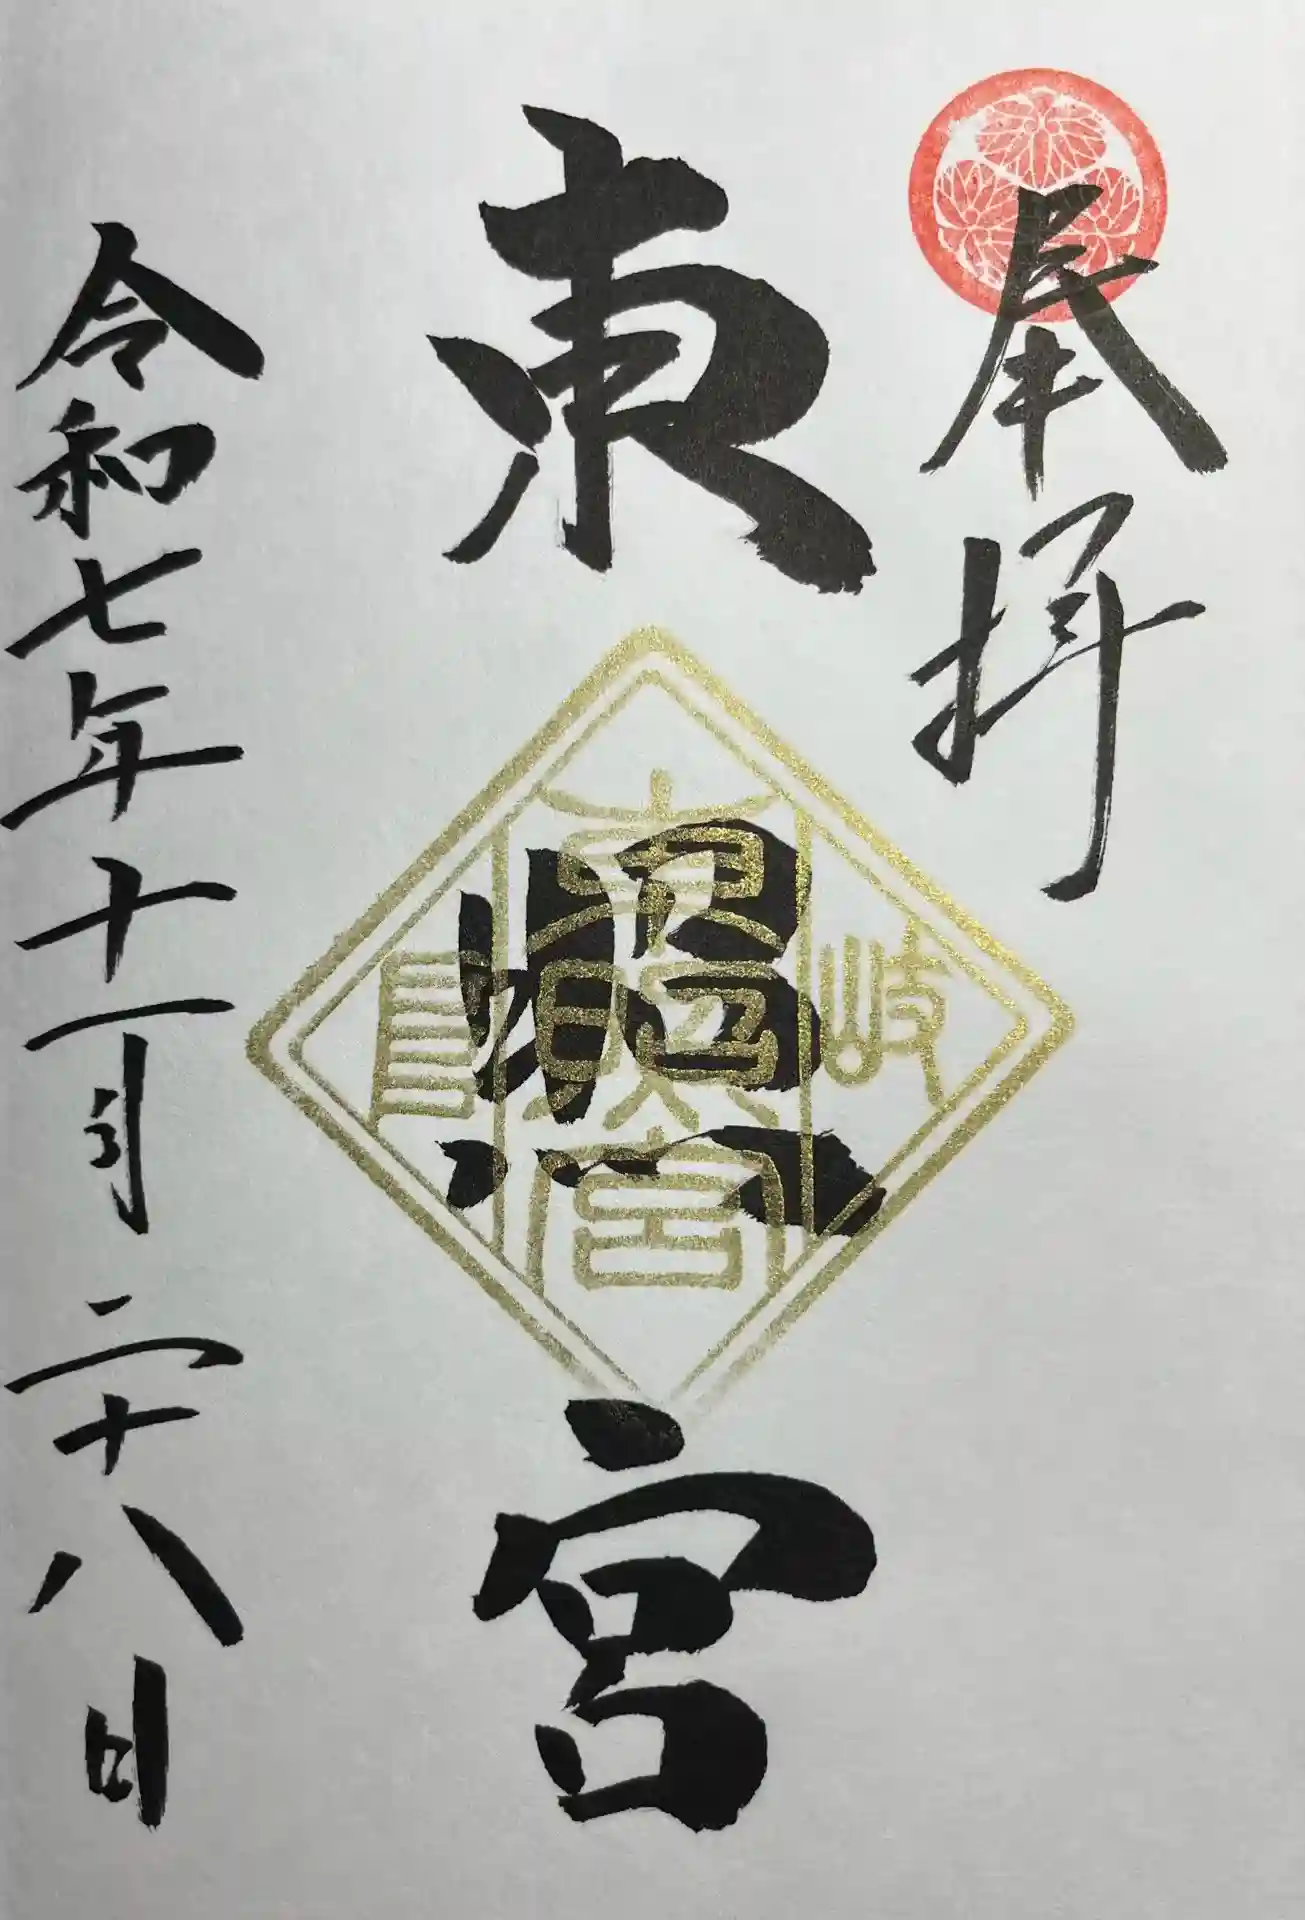 奉拝
東照宮
岐阜
東照宮
令和七年十一月二十八日